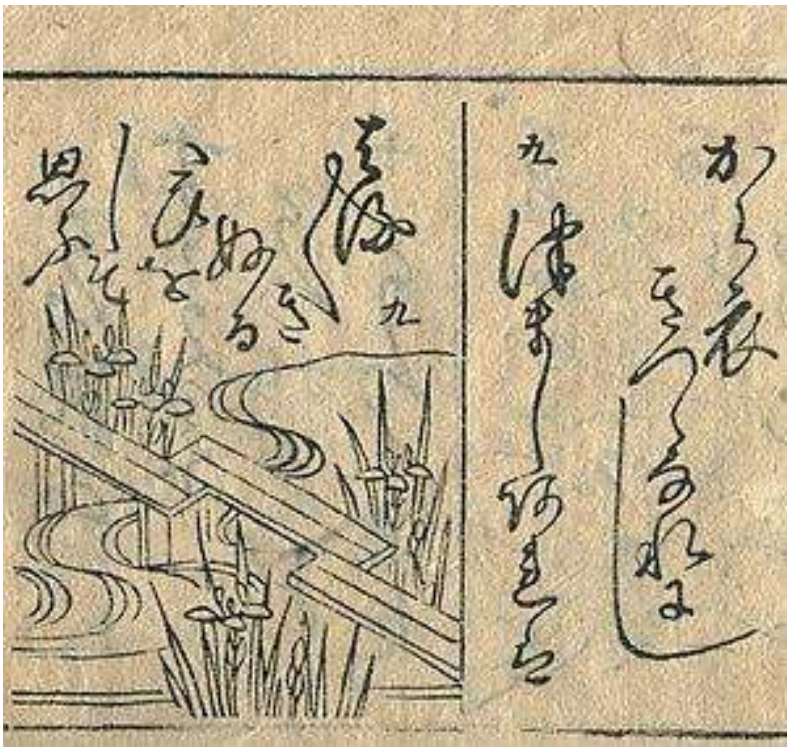 から衣
きつゝなれにし
九
つましあれは
はる〱
九
きぬる
たひを
しそ
思ふ